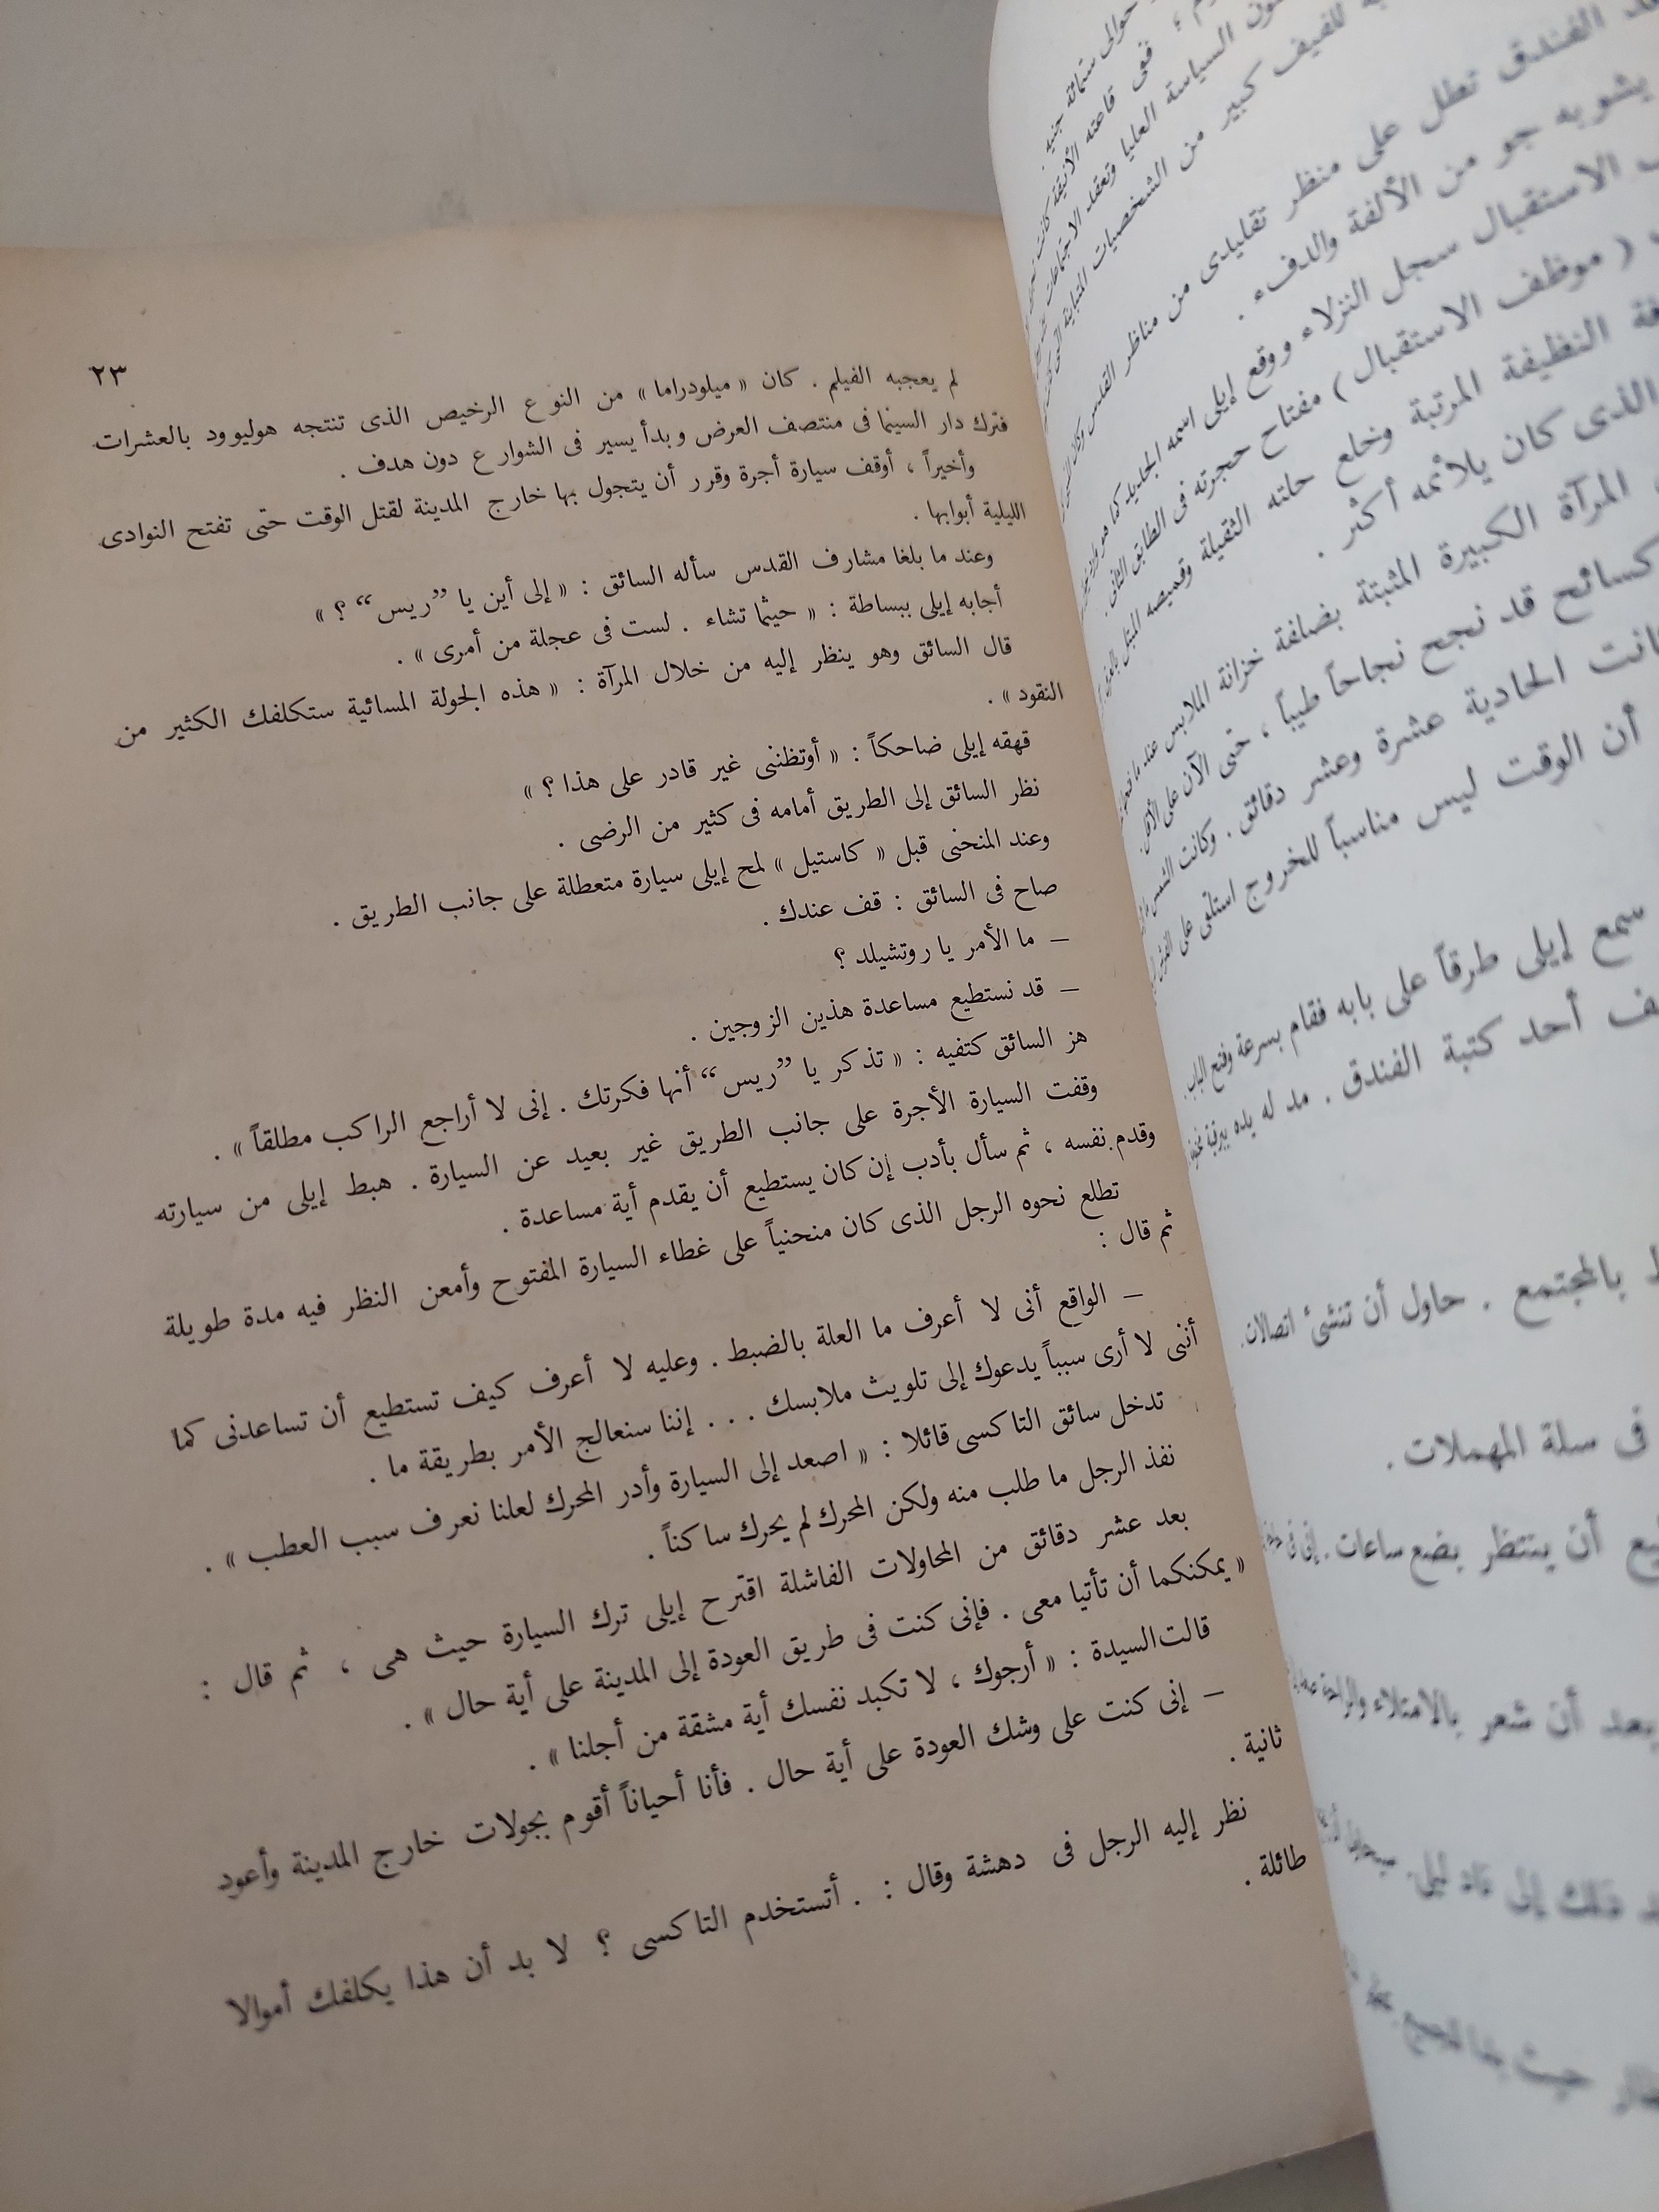 حوالى ستمائة جنيه .
ففى قاعته الأنيقة كانت
السياسة العليا وتعقد الاجتماعات
للفيف كبير من الشخصيات
الفندق تطل على منظر تقليدى من مناظر القدس وكان
يشوبه جو من الألفة والدفء .
الاستقبال سجل النزلاء ووقع إيلى اسمه الجديد كما هو
( موظف الاستقبال ) مفتاح حجرته فى الطابق الثانى .
النظيفة المرتبة وخلع حلته الثقيلة وقميصه المبتل
الذى كان يلائمه أكثر .
المرآة الكبيرة المثبتة بضلفة خزانة الملابس عند ما
كسائح قد نجح نجاحاً طيباً ، حتى الآن على الأقل .
الحادية عشرة وعشر دقائق . وكانت الشمس
أن الوقت ليس مناسباً للخروج استلقى على
سمع إيلى طرقاً على بابه فقام بسرعة وفتح الباب .
أحد كتبة الفندق . مد له يده ببرقية
بالمجتمع . حاول أن تنشئ اتصالات .
فى سلة المهملات .
أن ينتظر بضع ساعات . إنى فى
بعد أن شعر بالامتلاء والراحة
ذلك إلى ناد ليلى .
٢٣
لم يعجبه الفيلم . كان « ميلودراما » من النوع الرخيص الذى تنتجه هوليوود بالعشرات
فترك دار السينما فى منتصف العرض وبدأ يسير فى الشوارع دون هدف .
وأخيراً ، أوقف سيارة أجرة وقرر أن يتجول بها خارج المدينة لقتل الوقت حتى تفتح النوادى
الليلية أبوابها .
وعند ما بلغا مشارف القدس سأله السائق : « إلى أين يا ”ريس“ ؟ »
أجابه إيلى ببساطة : « حيثما تشاء . لست فى عجلة من أمرى » .
قال السائق وهو ينظر إليه من خلال المرآة : « هذه الجولة المسائية ستكلفك الكثير من
النقود » .
قهقه إيلى ضاحكاً : « أوتظننى غير قادر على هذا ؟ »
نظر السائق إلى الطريق أمامه فى كثير من الرضى .
وعند المنحنى قبل « كاستيل » لمح إيلى سيارة متعطلة على جانب الطريق .
صاح فى السائق : قف عندك .
– ما الأمر يا روتشيلد ؟
– قد نستطيع مساعدة هذين الزوجين .
هز السائق كتفيه : « تذكر يا ”ريس“ أنها فكرتك . إنى لا أراجع الراكب مطلقاً » .
وقفت السيارة الأجرة على جانب الطريق غير بعيد عن السيارة . هبط إيلى من سيارته
وقدم نفسه ، ثم سأل بأدب إن كان يستطيع أن يقدم أية مساعدة .
تطلع نحوه الرجل الذى كان منحنياً على غطاء السيارة المفتوح وأمعن النظر فيه مدة طويلة
ثم قال :
– الواقع أنى لا أعرف ما العلة بالضبط . وعليه لا أعرف كيف تستطيع أن تساعدنى كما
أننى لا أرى سبباً يدعوك إلى تلويث ملابسك . . . إننا سنعالج الأمر بطريقة ما .
تدخل سائق التاكسى قائلا : « اصعد إلى السيارة وأدر المحرك لعلنا نعرف سبب العطب » .
نفذ الرجل ما طلب منه ولكن المحرك لم يحرك ساكناً .
بعد عشر دقائق من المحاولات الفاشلة اقترح إيلى ترك السيارة حيث هى ، ثم قال :
« يمكنكما أن تأتيا معى . فإنى كنت فى طريق العودة إلى المدينة على أية حال » .
قالت السيدة : « أرجوك ، لا تكبد نفسك أية مشقة من أجلنا » .
– إنى كنت على وشك العودة على أية حال . فأنا أحياناً أقوم بجولات خارج المدينة وأعود
ثانية .
نظر إليه الرجل فى دهشة وقال : . أتستخدم التاكسى ؟ لا بد أن هذا يكلفك أموالا
طائلة .